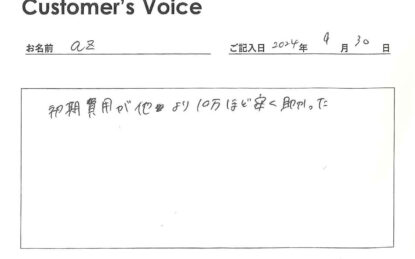 Customer's Voice
お名前 az ご記入日 2024年 9月30日
初期費用が他より10万ほど安く助かった